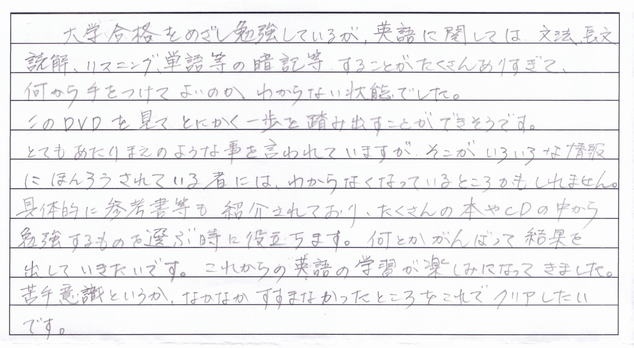 大学合格をめざし勉強しているが、英語に関しては、文法、長文
読解、リスニング、単語等の暗記等、することがたくさんありすぎて、
何から手をつけてよいのか、わからない状態でした。
このDVDを見てとにかく一歩を踏み出すことができそうです。
とてもあたりまえのような事を言われていますが、そこがいろいろな情報
にほんろうされている者には、わからなくなっているところかもしれません。
具体的に参考書等も紹介されており、たくさんの本やCDの中から
勉強するものを選ぶ時に役立ちます。何とかがんばって結果を
出していきたいです。これからの英語の学習が楽しみになってきました。
苦手意識というか、なかなかすすまなかったところをこれでクリアしたい
です。